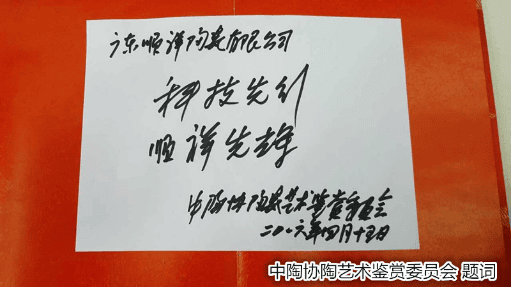 广东顺祥陶瓷有限公司
科技先行
顺祥先雄
中陶协陶瓷艺术鉴赏委员会
二〇一六年四月十五日
中陶协陶艺术鉴赏委员会 题词